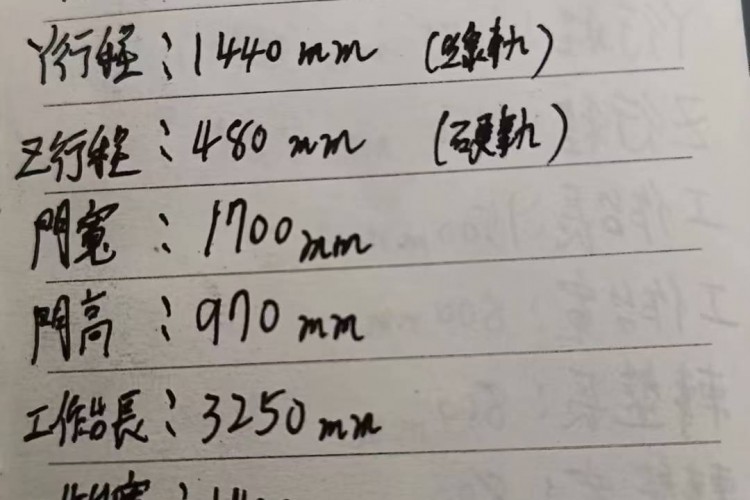 Y行程：1440 mm （線軌）
Z行程：480 mm （硬軌）
門寬：1700 mm
門高：970 mm
工作台長：3250 mm